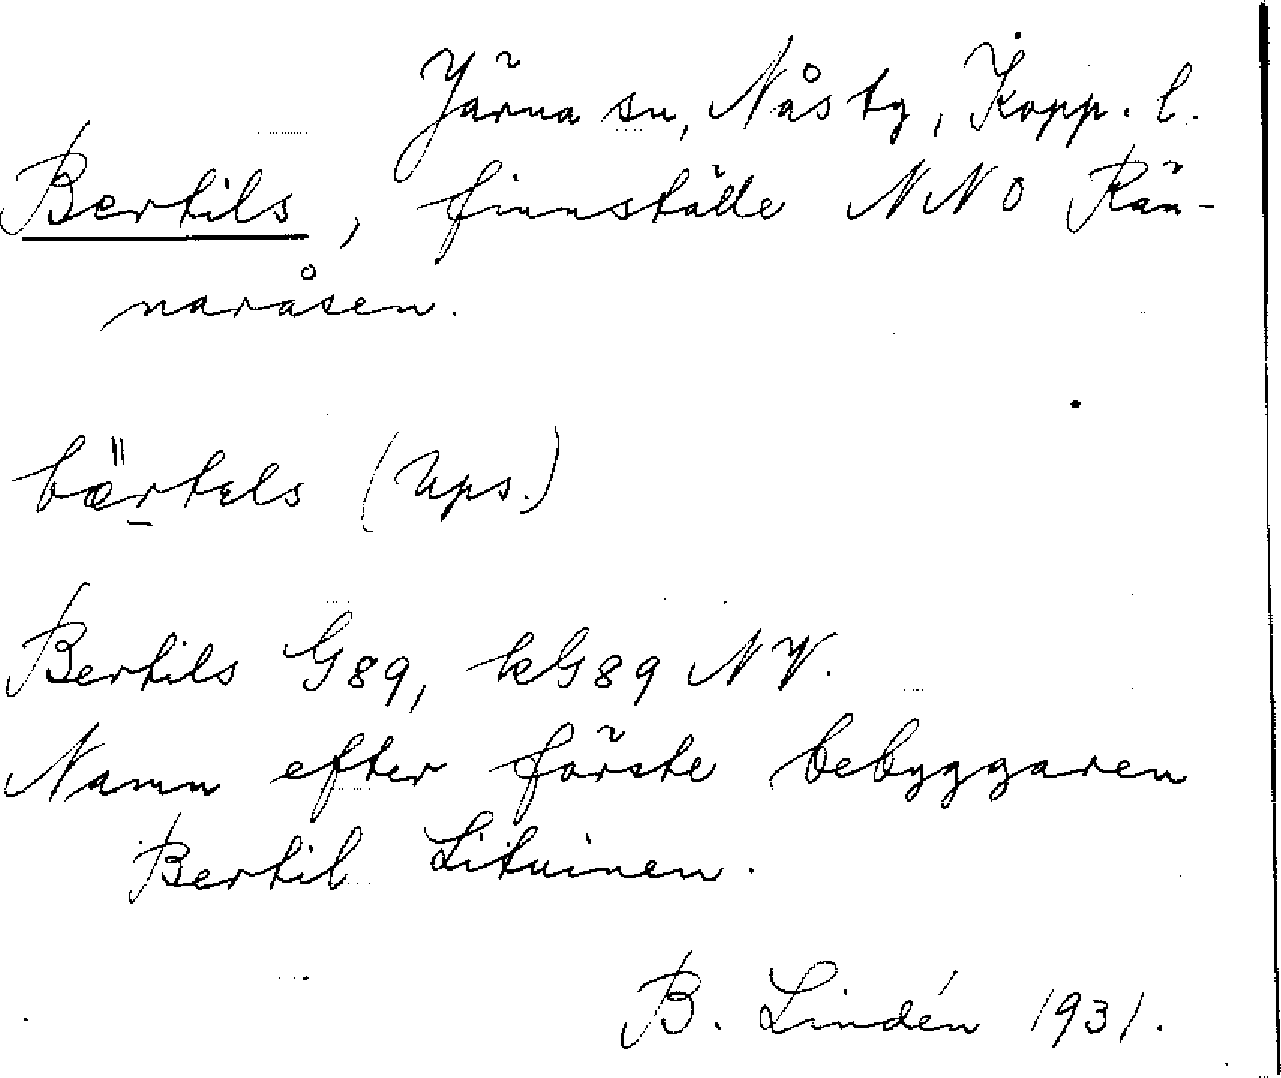 Järna sn, Nås tg, Kopp. l.
Bertils, finnställe NNO Rän-
naråsen.
bæ̈r̲tels (Ups.)
Bertils G89, kG89 NV.
Namn efter förste bebyggaren
Bertil Lituinen.
B. Lindén 1931.